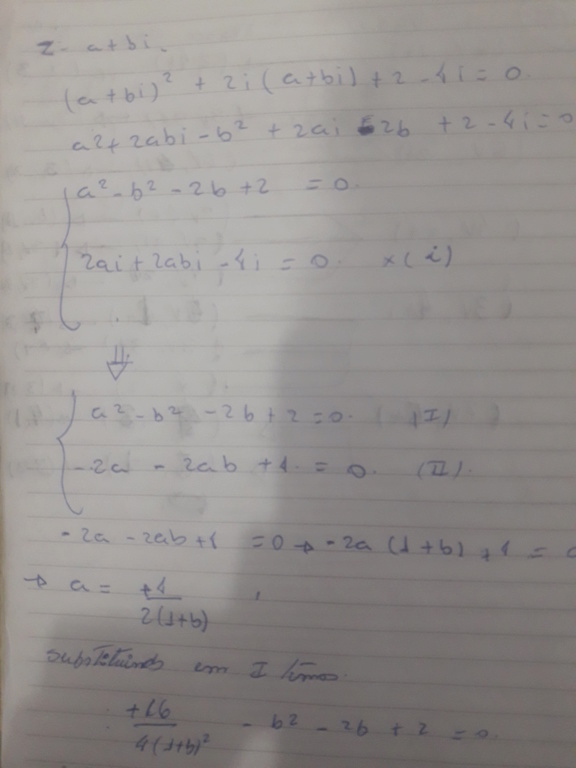 z = a+bi.
(a+bi)² + 2i(a+bi)+2-4i=0.
a²+2abi-b²+2ai-2b+2-4i=0
a²-b²-2b+2 =0.
2ai+2abi-4i=0. x(i)
⇓
a²-b²-2b+2=0. (I)
-2a-2ab+4=0. (II).
-2a-2ab+4=0→-2a(1+b)+4=0
→ a = +4/2(1+b)
substituindo em I temos.
+16/4(1+b)² - b² - 2b + 2 = 0.